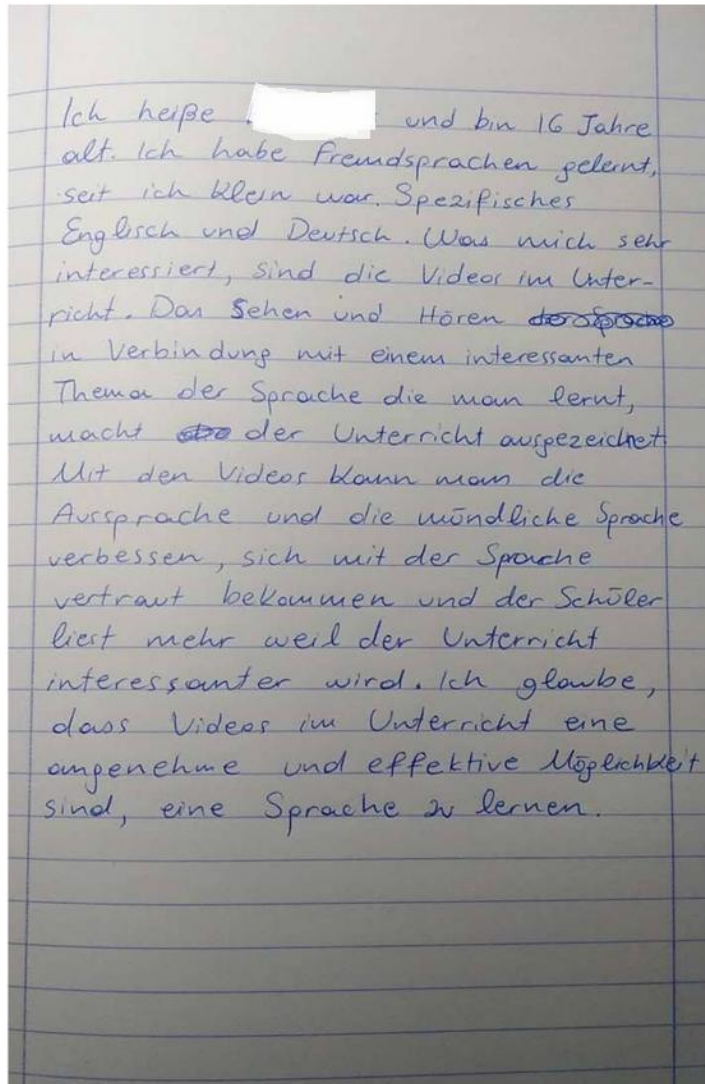 Ich heiße und bin 16 Jahre
alt. Ich habe Fremdsprachen gelernt,
seit ich klein war. Spezifisches
Englisch und Deutsch. Was mich sehr
interessiert, sind die Videos im Unter-
richt. Das Sehen und Hören
in Verbindung mit einem interessanten
Thema der Sprache die man lernt,
macht der Unterricht ausgezeichet
Mit den Videos kann man die
Aussprache und die mündliche Sprache
verbessen, sich mit der Sprache
vertraut bekommen und der Schüler
liest mehr weil der Unterricht
interessanter wird. Ich glaube,
dass Videos im Unterricht eine
angenehme und effektive Möglichkeit
sind, eine Sprache zu lernen.